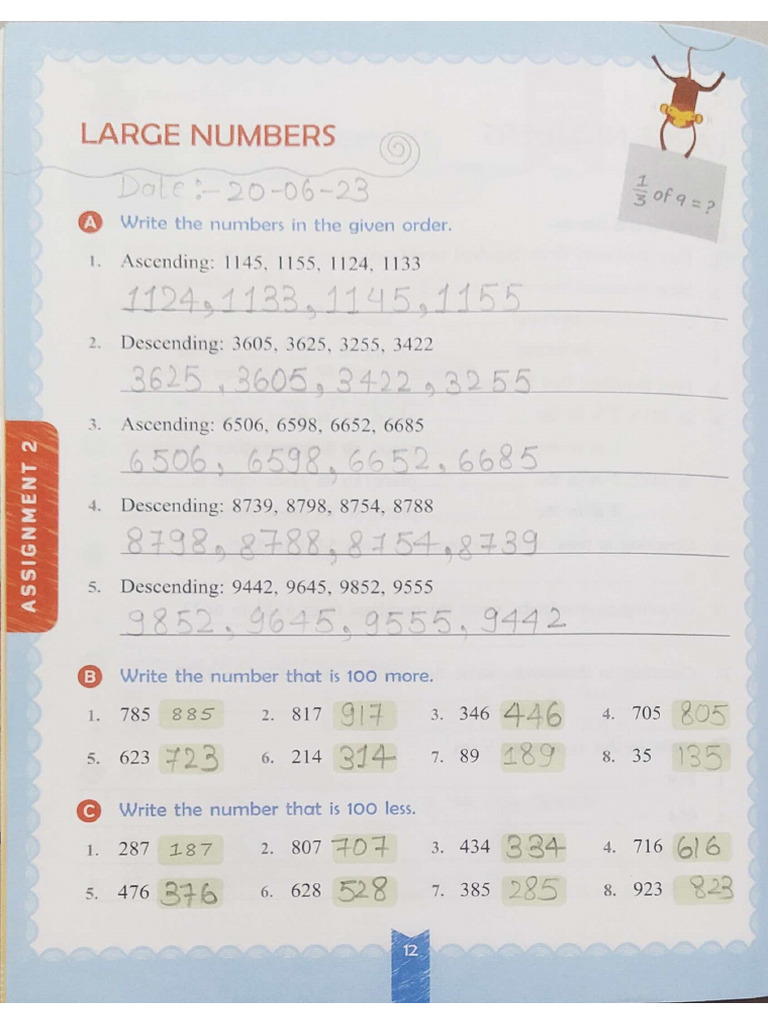 LARGE NUMBERS
Date :- 20-06-23
1/3 of 9 = ?
A Write the numbers in the given order.
1. Ascending: 1145, 1155, 1124, 1133
1124, 1133, 1145, 1155
2. Descending: 3605, 3625, 3255, 3422
3625, 3605, 3422, 3255
3. Ascending: 6506, 6598, 6652, 6685
6506, 6598, 6652, 6685
4. Descending: 8739, 8798, 8754, 8788
8798, 8788, 8754, 8739
5. Descending: 9442, 9645, 9852, 9555
9852, 9645, 9555, 9442
ASSIGNMENT 2
B Write the number that is 100 more.
1. 785 885 2. 817 917 3. 346 446 4. 705 805
5. 623 723 6. 214 314 7. 89 189 8. 35 135
C Write the number that is 100 less.
1. 287 187 2. 807 707 3. 434 334 4. 716 616
5. 476 376 6. 628 528 7. 385 285 8. 923 823
12